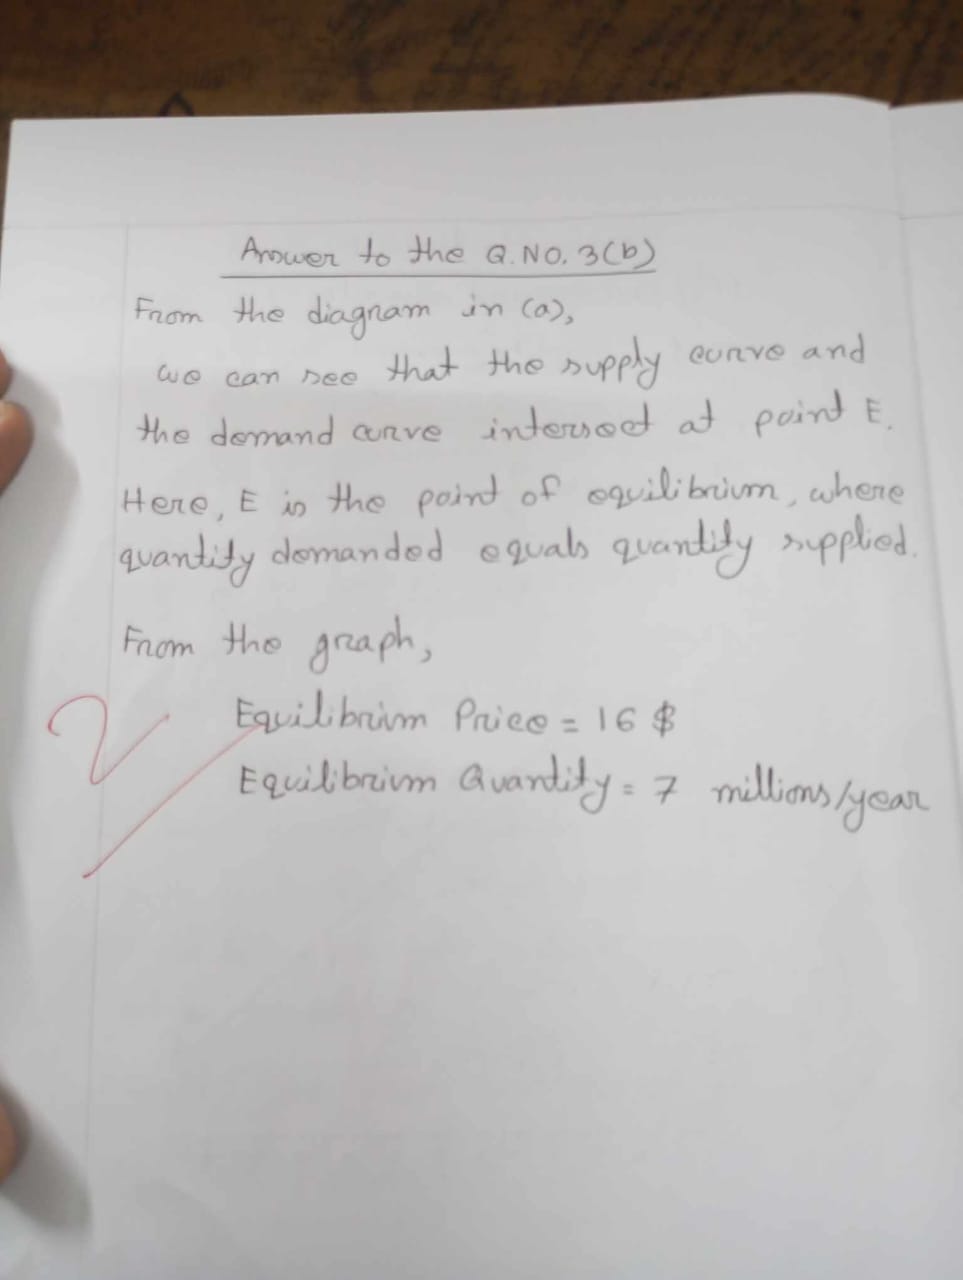 Answer to the Q.NO. 3(b)
From the diagram in (a),
we can see that the supply curve and
the demand curve intersect at point E.
Here, E is the point of equilibrium, where
quantity demanded equals quantity supplied.
From the graph,
Equilibrium Price = 16 $
Equilibrium Quantity = 7 millions/year
2